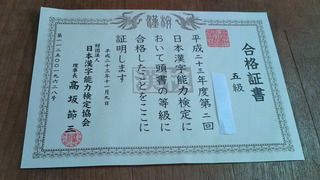 漢検
合格証書
五級
平成二十三年度第二回
日本漢字能力検定に
おいて頭書の等級に
合格したことをここに
証明します
平成二十三年十一月九日
財団法人
日本漢字能力検定協会
理事長 高坂節三